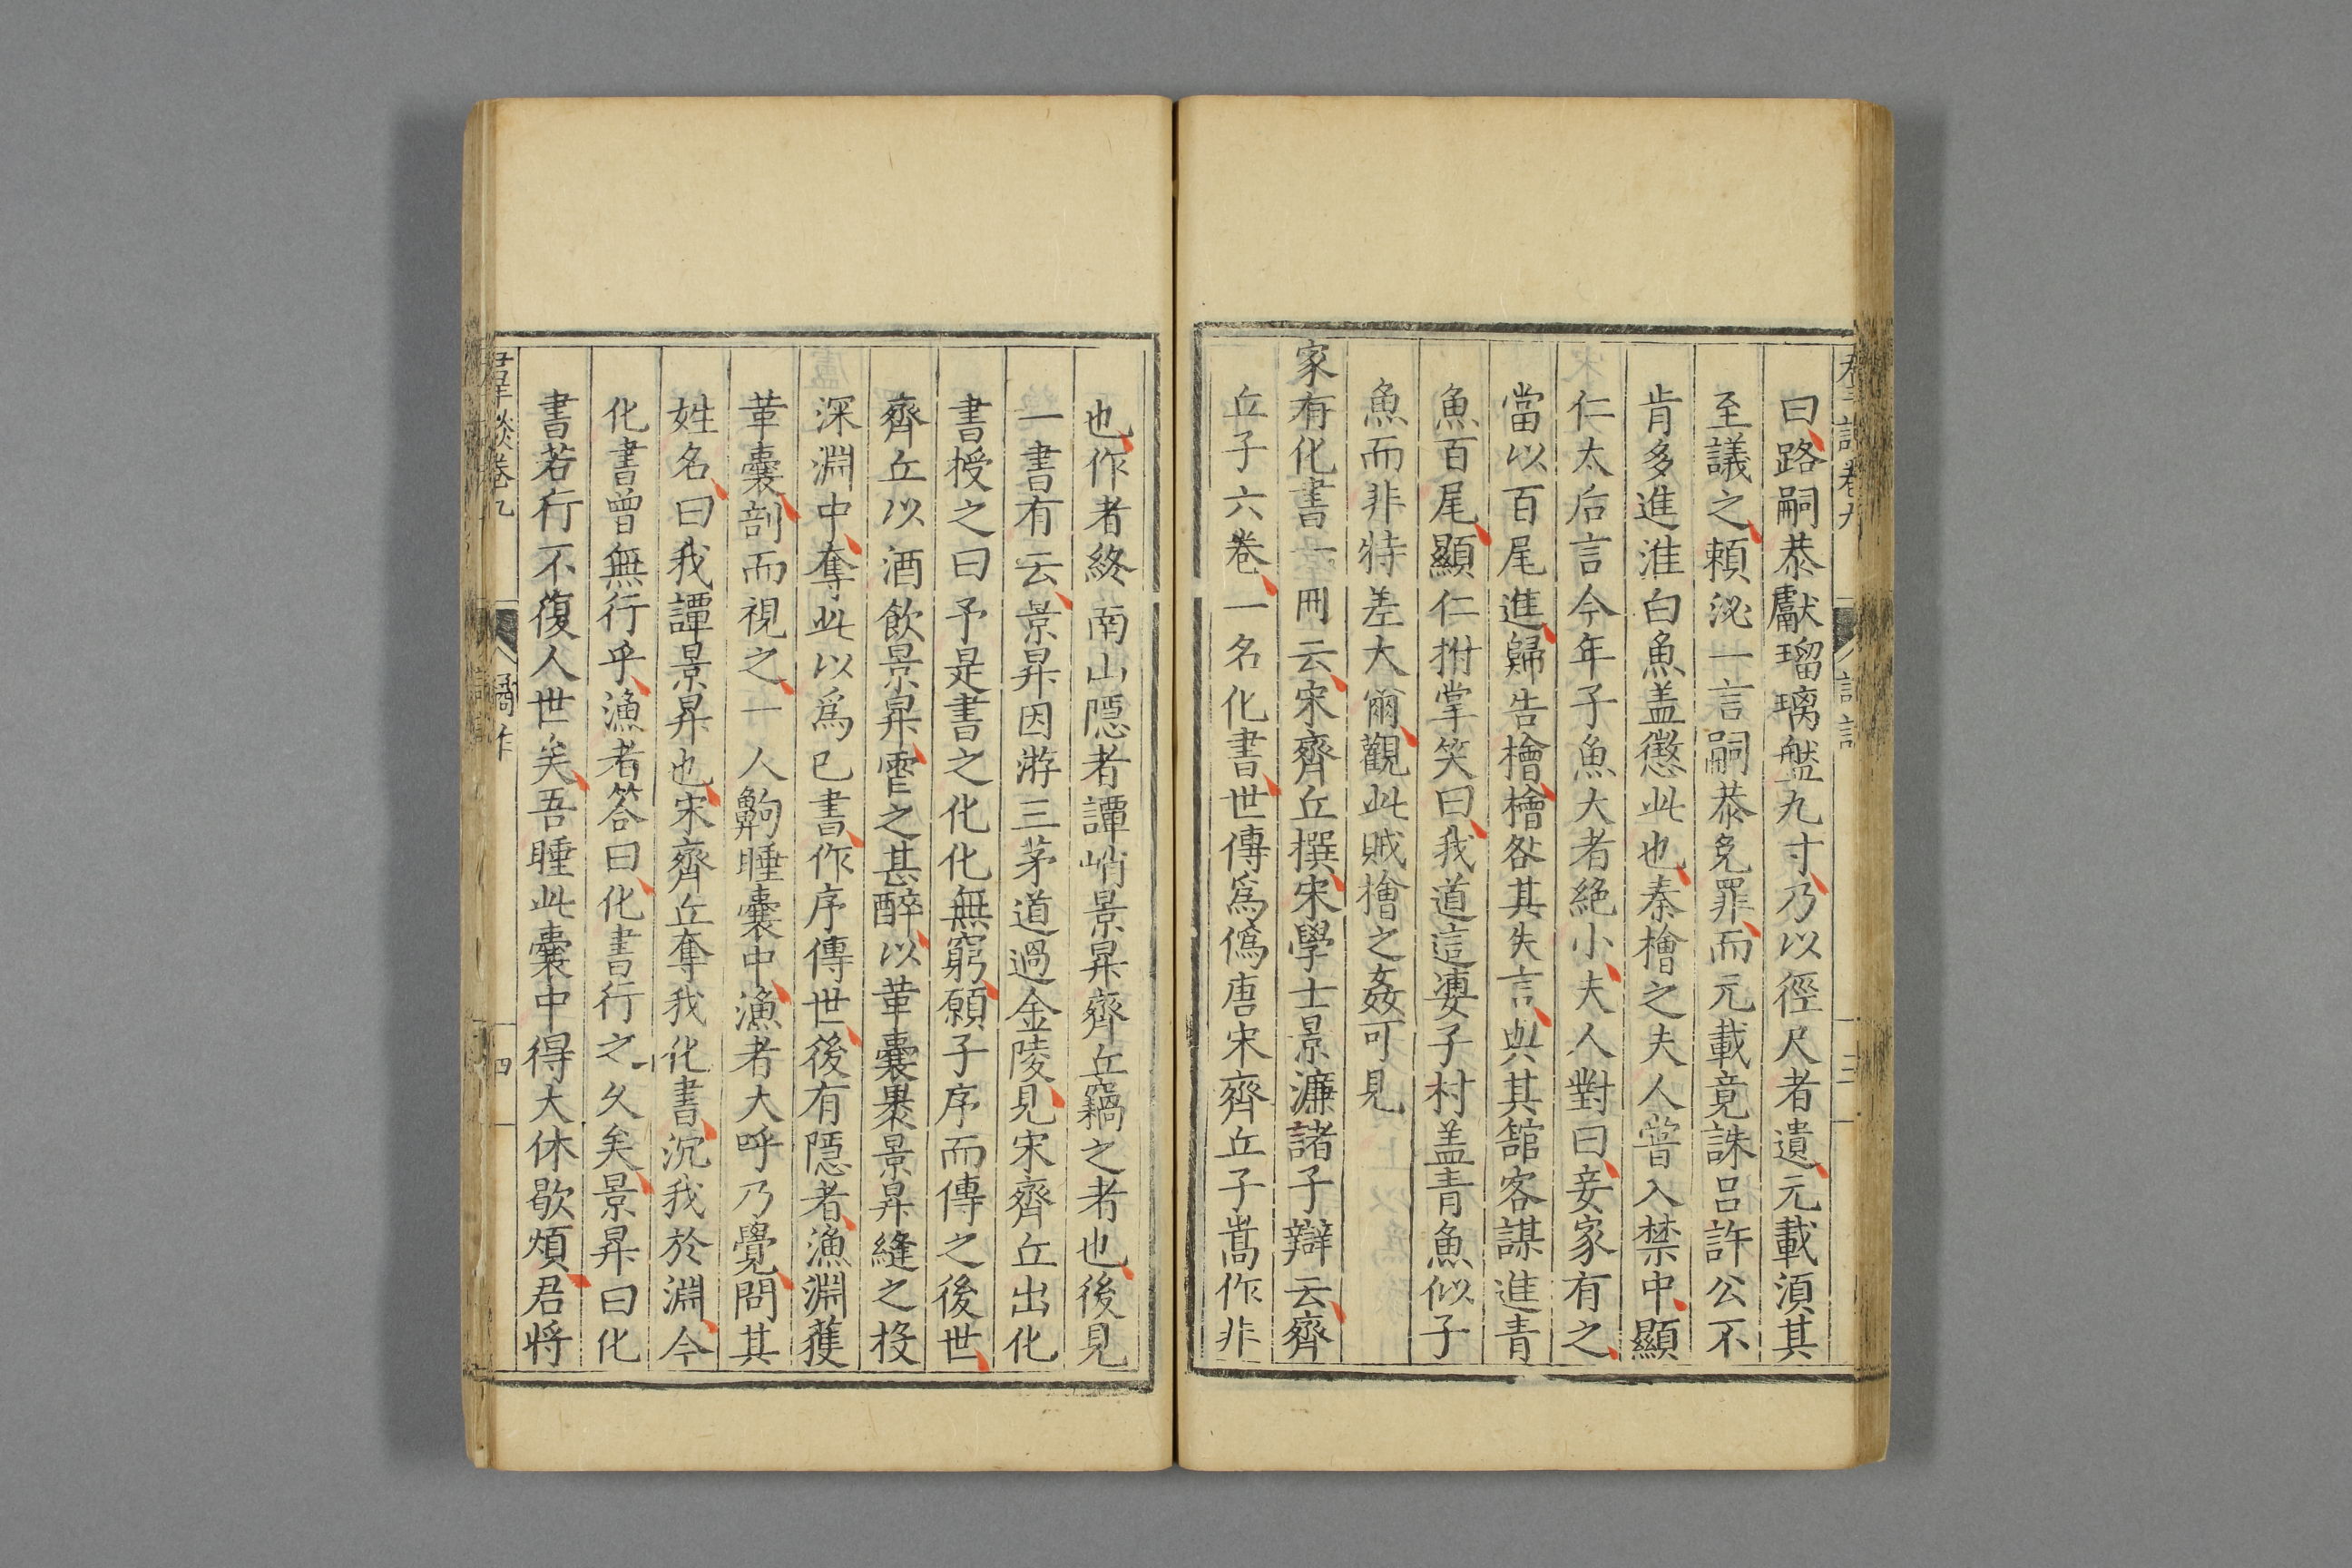 曰路嗣恭獻瑠璃盤九寸乃以徑尺者遺元載須其
至議之賴泌一言嗣恭免罪而元載竟誅呂許公不
肯多進淮白魚盖懲此也秦檜之夫人嘗入禁中顯
仁太后言今年子魚大者絶小夫人對曰妾家有之
當以百尾進歸告檜檜咎其失言與其舘客謀進青
魚百尾顯仁拊掌笑曰我道這婆子村盖青魚似子
魚而非特差大爾觀此賊檜之姦可見
家有化書一冊云宋齊丘撰宋學士景濂諸子辯云齊
丘子六卷一名化書世傳爲僞唐宋齊丘子嵩作非
也作者終南山隱者譚峭景昇齊丘竊之者也後見
一書有云景昇因游三茅道過金陵見宋齊丘出化
書授之曰予是書之化化無窮願子序而傳之後世
齊丘以酒飲景昇䨱之甚醉以革囊裹景昇縫之投
深淵中奪此以爲已書作序傳世後有隱者漁淵獲
革囊剖而視之一人齁睡囊中漁者大呼乃覺問其
姓名曰我譚景昇也宋齊丘奪我化書沉我於淵今
化書曾無行乎漁者答曰化書行之久矣景昇曰化
書若行不復人世矣吾睡此囊中得大休歇煩君将
羣談卷九
四